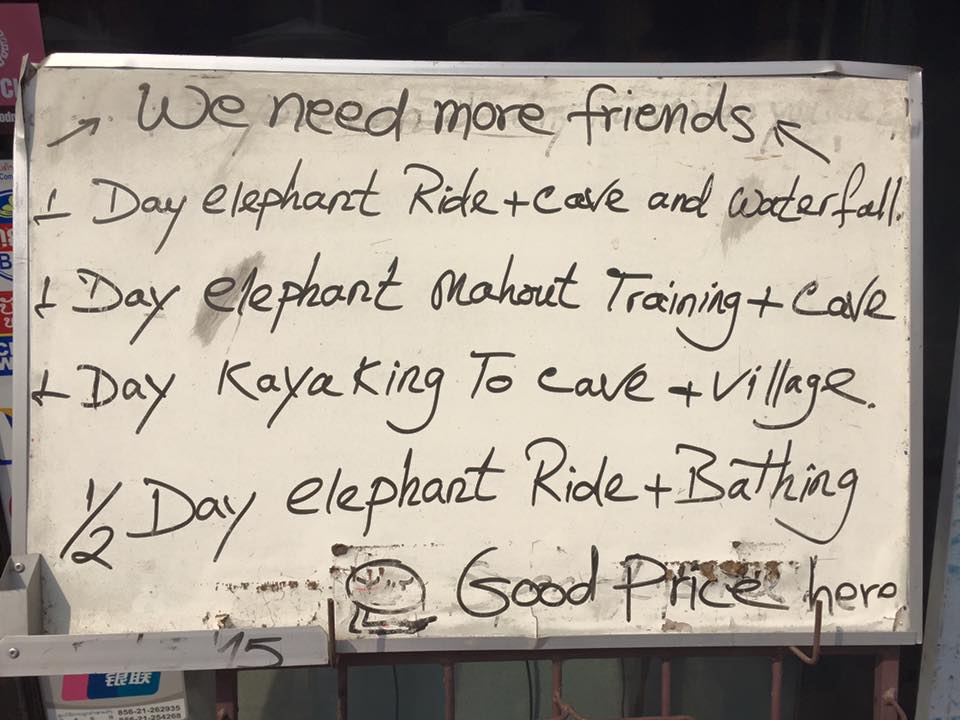 We need more friends
1 Day elephant Ride + Cave and Waterfall.
1 Day elephant Mahout Training + Cave
1 Day Kayaking To Cave + Village.
1/2 Day elephant Ride + Bathing
Good Price here
'15
银联
856-21-262935
856-21-254268